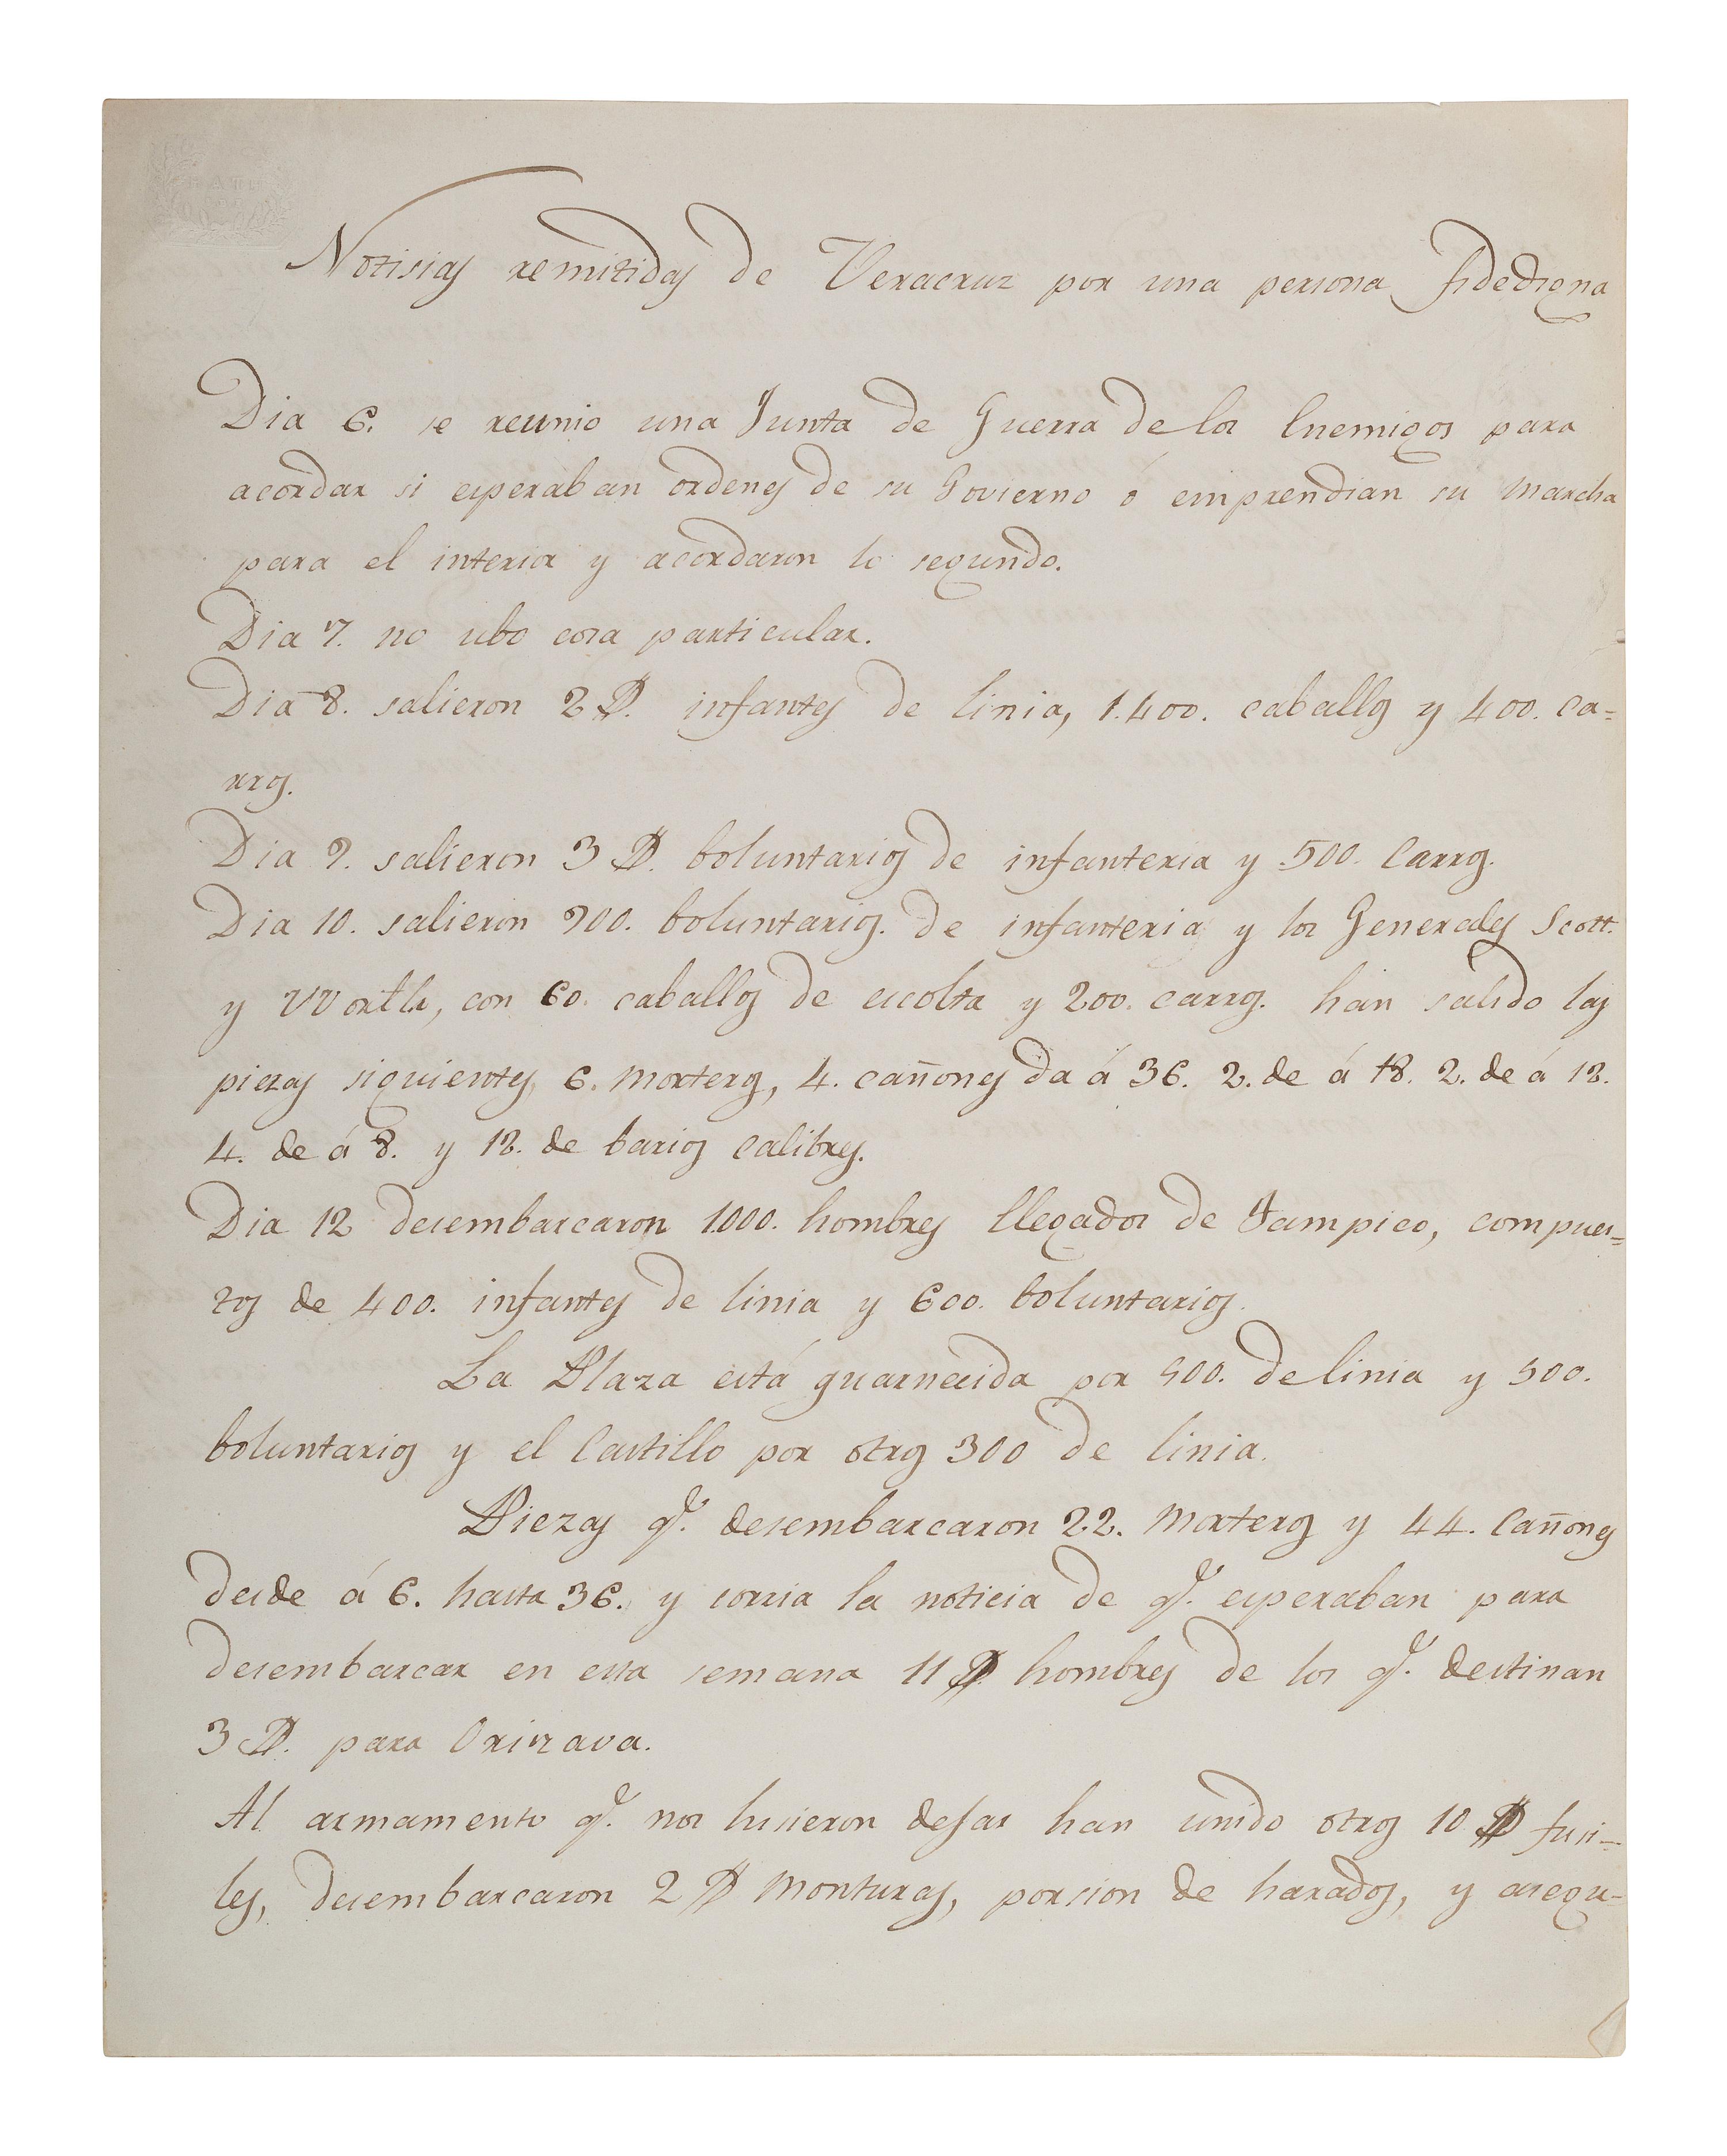 Notisias remitidas de Veracruz por una persona fidedigna
Dia 6. se reunio una Junta de Guerra de los Enemigos para
acordar si esperaban ordenes de su Govierno ó emprendian su marcha
para el interior y acordaron lo segundo.
Dia 7. no ubo cosa particular.
Dia 8. salieron 2 D. infantes de linia, 1.400. caballos y 400. ca=
rros.
Dia 9. salieron 3 D. boluntarios de infanteria y 500. Carros.
Dia 10. salieron 900. boluntarios. de infanteria y los Generales Scott.
y VVorth, con 60. caballos de escolta y 200. carros. han salido las
piezas siguientes, 6. morteros, 4. cañones da á 36. 2. de á 18. 2. de á 12.
4. de á 8. y 12. de barios Calibres.
Dia 12 desembarcaron 1000. hombres llegados de Tampico, compues=
tos de 400. infantes de linia y 600. boluntarios.
La Plaza está guarnecida por 500. de linia y 500.
boluntarios y el Castillo por otros 300 de linia.
Piezas q.e desembarcaron 22. morteros y 44. Cañones
desde á 6. hasta 36. y corria la noticia de q.e esperaban para
desembarcar en esta semana 11 D hombres de los q.e destinan
3 D. para Orizava.
Al armamento q.e nos hisieron dejar han unido otros 10. D fusi=
les, desembarcaron 2 D monturas, porsion de harados, y asegu=